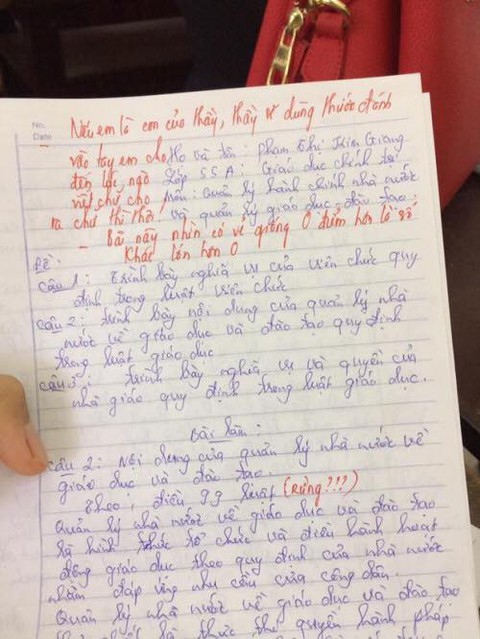 No.
Date
Nếu em là con của thầy, thầy sẽ dùng thước đánh
vào tay em cho Họ và tên: Phạm Thị Kim Giang
đến lúc nào Lớp 55A: Giáo dục chính trị
viết chữ cho Môn: Quản lý hành chính nhà nước
ra chữ thì thôi và quản lý giáo dục, đào tạo.
- Bài này nhìn có vẻ giống 0 điểm hơn là số
khác lớn hơn 0
Đề:
Câu 1: Trình bày nghĩa vụ của viên chức quy
định trong luật viên chức
Câu 2: Trình bày nội dung của quản lý nhà
nước về giáo dục và đào tạo quy định
trong luật giáo dục
Câu 3: Trình bày nghĩa vụ và quyền của
nhà giáo quy định trong luật giáo dục.
Bài làm:
Câu 2: Nội dung của quản lý nhà nước về
giáo dục và đào tạo.
Theo: điều 99 luật (Rừng???)
Quản lý nhà nước về giáo dục và đào tạo
là hình thức tổ chức và điều hành hoạt
động giáo dục theo quy định của nhà nước
nhằm đáp ứng nhu cầu của công dân.
Quản lý nhà nước về giáo dục và đào tạo
là thực thi quyền hành pháp